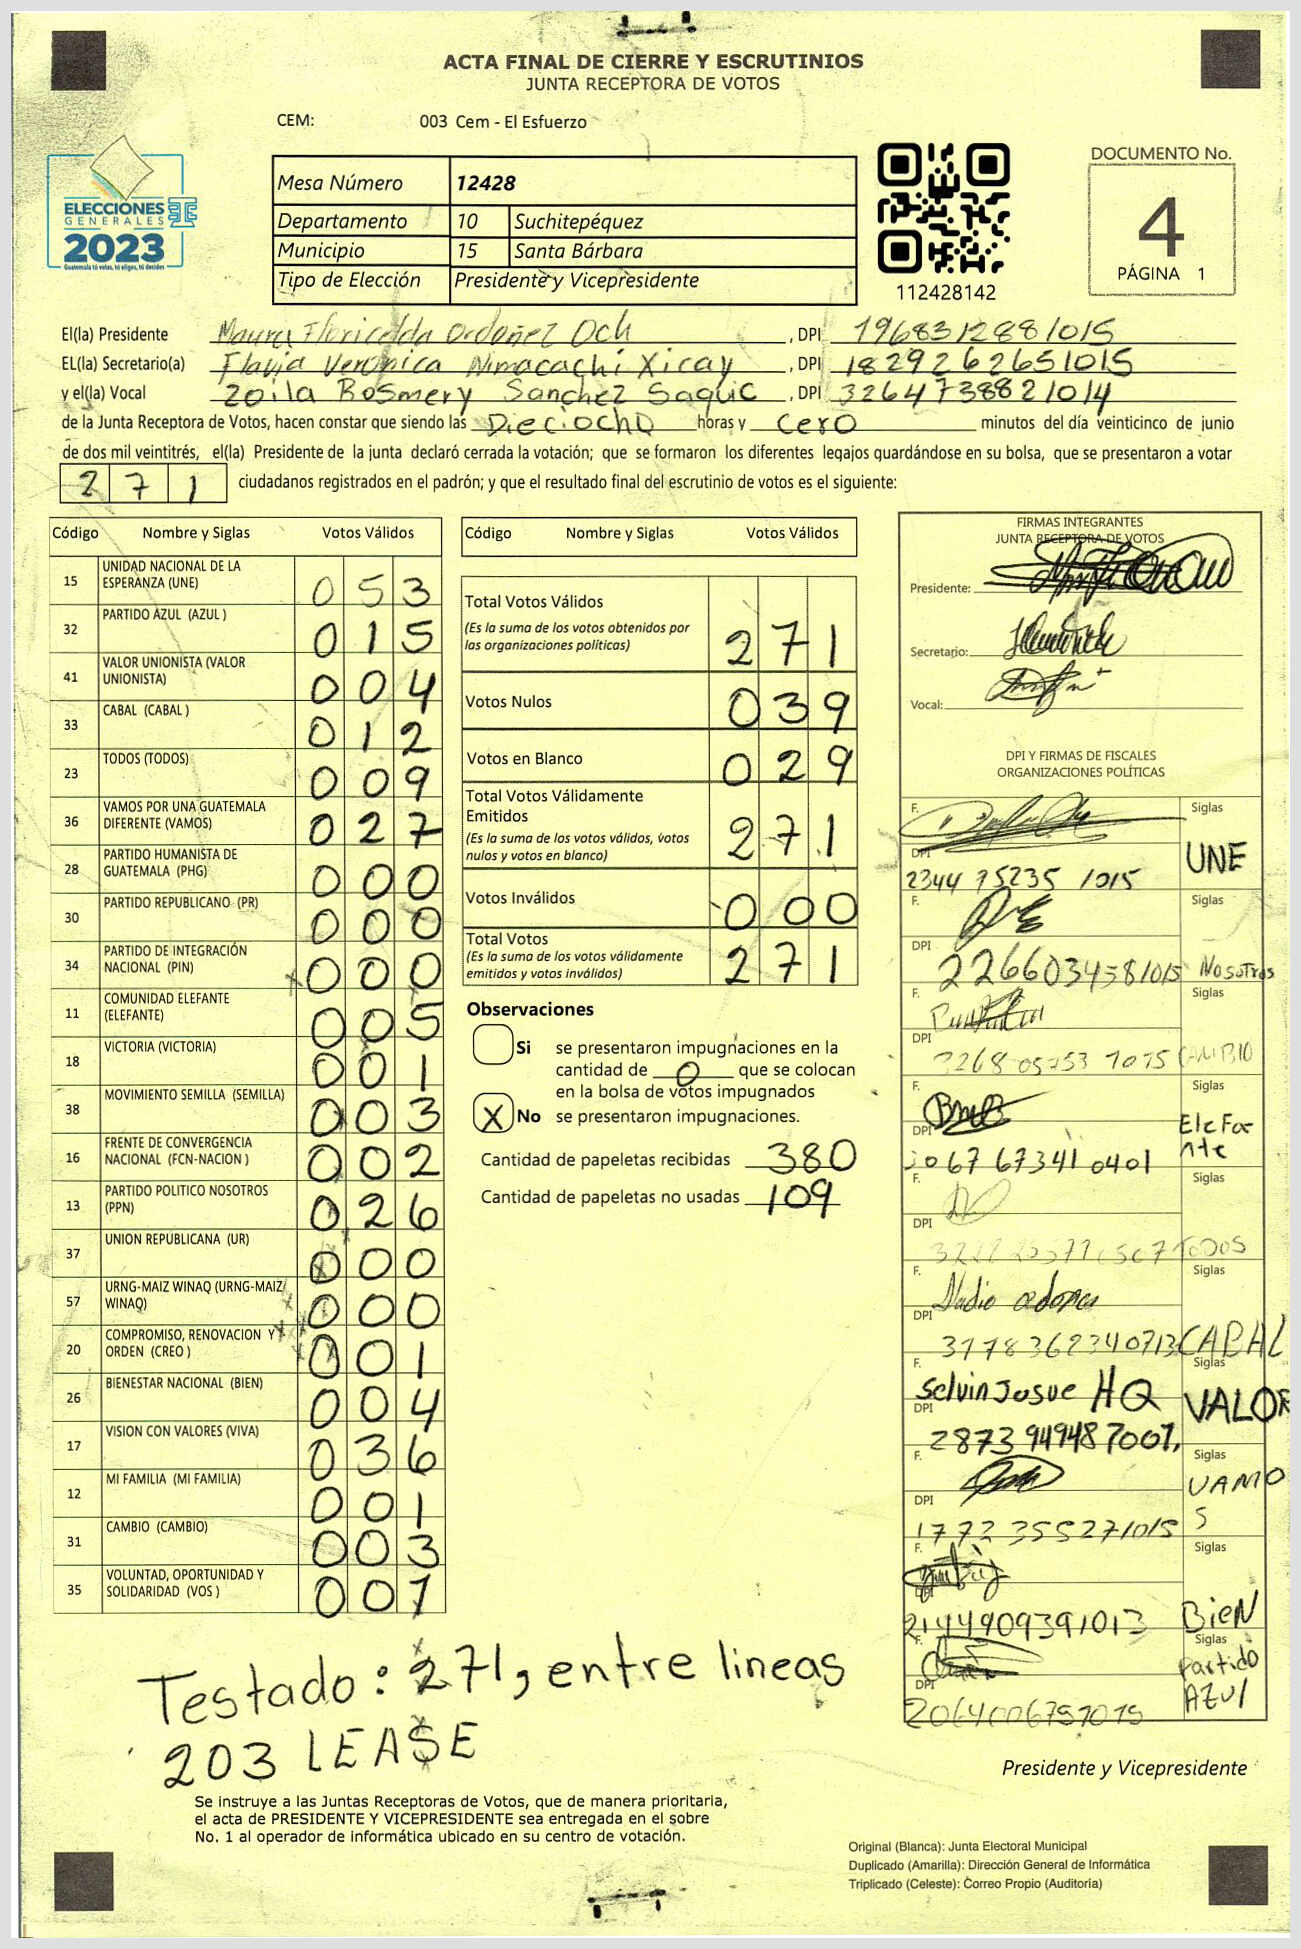 ACTA FINAL DE CIERRE Y ESCRUTINIOS
JUNTA RECEPTORA DE VOTOS
CEM: 003 Cem - El Esfuerzo
ELECCIONES
GENERALES
2023
Guatemala tú votas, tú eliges, tú decides
Mesa Número 12428
Departamento 10 Suchitepéquez
Municipio 15 Santa Bárbara
Tipo de Elección Presidente y Vicepresidente
112428142
DOCUMENTO No.
4
PÁGINA 1
El(la) Presidente Maura Floricelda Ordoñez Och , DPI 1968312881015
EL(la) Secretario(a) Flavia Veronica Nimacachí Xicay , DPI 1829262651015
y el(la) Vocal Zoila Rosmery Sanchez Saquic , DPI 3264738821014
de la Junta Receptora de Votos, hacen constar que siendo las Dieciocho horas y cero minutos del día veinticinco de junio
de dos mil veintitrés, el(la) Presidente de la junta declaró cerrada la votación; que se formaron los diferentes legajos quardándose en su bolsa, que se presentaron a votar
271 ciudadanos registrados en el padrón; y que el resultado final del escrutinio de votos es el siguiente:
Código Nombre y Siglas Votos Válidos
15 UNIDAD NACIONAL DE LA ESPERANZA (UNE) 053
32 PARTIDO AZUL (AZUL ) 015
41 VALOR UNIONISTA (VALOR UNIONISTA) 004
33 CABAL (CABAL ) 012
23 TODOS (TODOS) 009
36 VAMOS POR UNA GUATEMALA DIFERENTE (VAMOS) 027
28 PARTIDO HUMANISTA DE GUATEMALA (PHG) 000
30 PARTIDO REPUBLICANO (PR) 000
34 PARTIDO DE INTEGRACIÓN NACIONAL (PIN) 000
11 COMUNIDAD ELEFANTE (ELEFANTE) 005
18 VICTORIA (VICTORIA) 001
38 MOVIMIENTO SEMILLA (SEMILLA) 003
16 FRENTE DE CONVERGENCIA NACIONAL (FCN-NACION ) 002
13 PARTIDO POLITICO NOSOTROS (PPN) 026
37 UNION REPUBLICANA (UR) 000
57 URNG-MAIZ WINAQ (URNG-MAIZ WINAQ) 000
20 COMPROMISO, RENOVACION Y ORDEN (CREO ) 001
26 BIENESTAR NACIONAL (BIEN) 004
17 VISION CON VALORES (VIVA) 036
12 MI FAMILIA (MI FAMILIA) 001
31 CAMBIO (CAMBIO) 003
35 VOLUNTAD, OPORTUNIDAD Y SOLIDARIDAD (VOS ) 007
Código Nombre y Siglas Votos Válidos
Total Votos Válidos 271
(Es la suma de los votos obtenidos por las organizaciones políticas)
Votos Nulos 039
Votos en Blanco 029
Total Votos Válidamente Emitidos 271
(Es la suma de los votos válidos, votos nulos y votos en blanco)
Votos Inválidos 000
Total Votos 271
(Es la suma de los votos válidamente emitidos y votos inválidos)
Observaciones
Si se presentaron impugnaciones en la
cantidad de 0 que se colocan
en la bolsa de votos impugnados
X No se presentaron impugnaciones.
Cantidad de papeletas recibidas 380
Cantidad de papeletas no usadas 109
FIRMAS INTEGRANTES
JUNTA RECEPTORA DE VOTOS
Presidente:
Secretario:
Vocal:
DPI Y FIRMAS DE FISCALES
ORGANIZACIONES POLÍTICAS
F. Siglas
DPI 2344 75235 1015 UNE
F. Siglas
DPI 2266034581015 Nosotros
F. Siglas
DPI CAMBIO
F. Siglas
DPI 67 67341 0401 Elefante
F. Siglas
DPI TODOS
F. Siglas
DPI 3778362340713 CABAL
F. Selvin Josue HQ Siglas
DPI 2873 94948 7001. VALOR
F. Siglas
DPI 1772 355271015 VAMOS
F. Siglas
DPI 2144909391013 BieN
F. Siglas
DPI 2064006751015 Partido AZUl
Testado: 271, entre lineas
203 LEASE
Presidente y Vicepresidente
Se instruye a las Juntas Receptoras de Votos, que de manera prioritaria,
el acta de PRESIDENTE Y VICEPRESIDENTE sea entregada en el sobre
No. 1 al operador de informática ubicado en su centro de votación.
Original (Blanca): Junta Electoral Municipal
Duplicado (Amarilla): Dirección General de Informática
Triplicado (Celeste): Correo Propio (Auditoria)